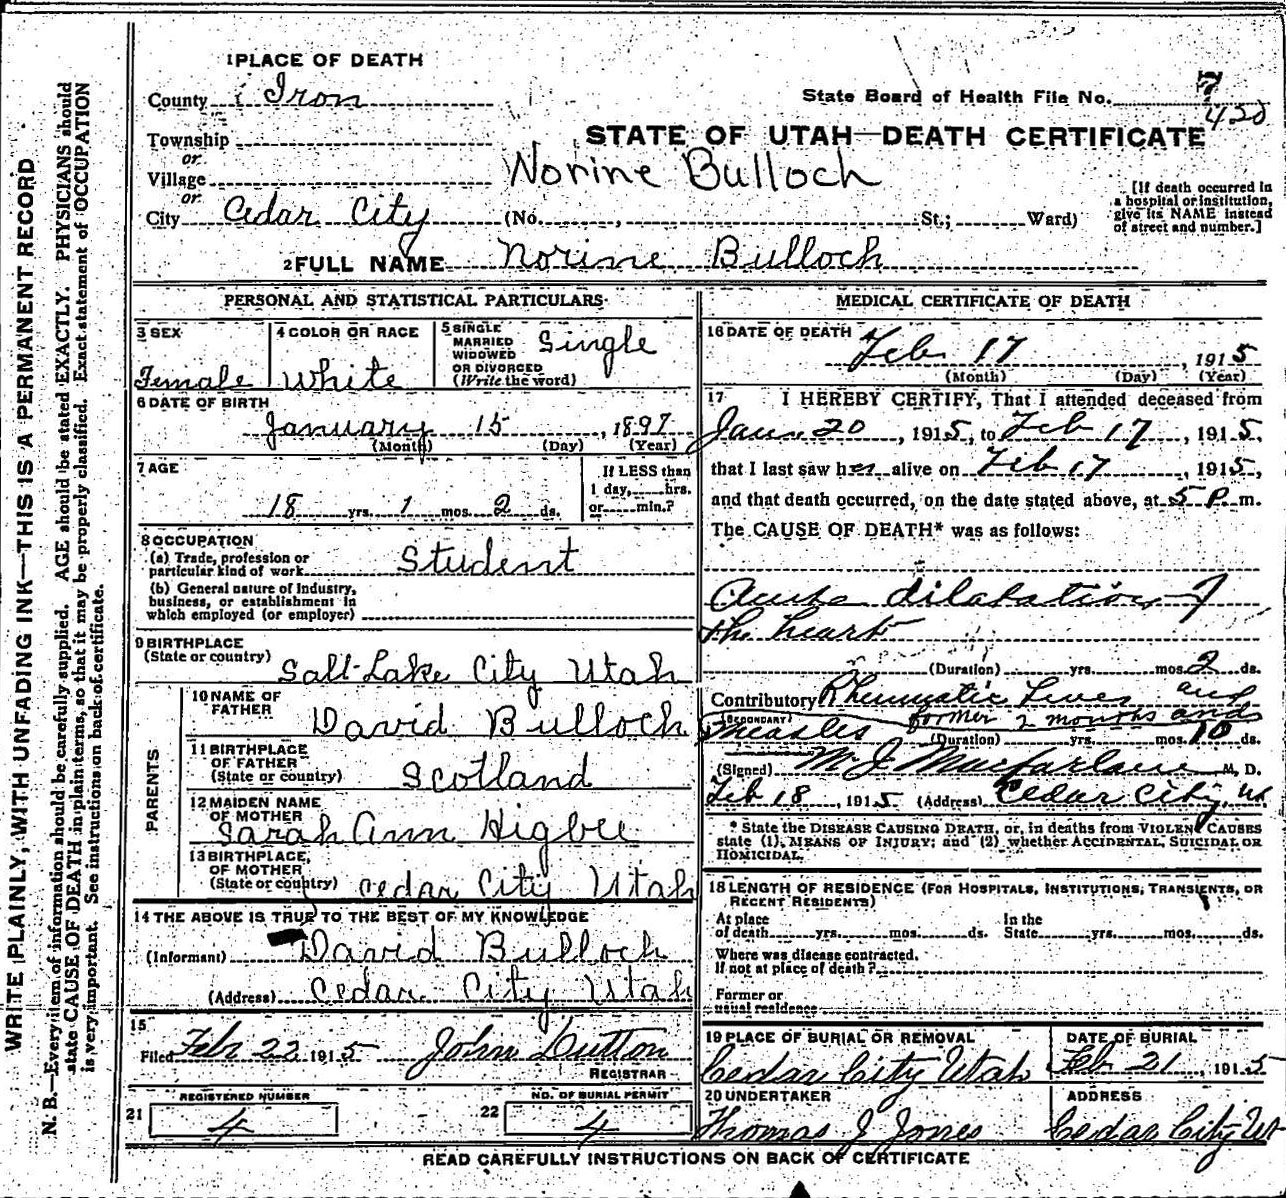 WRITE PLAINLY, WITH UNFADING INK—THIS IS A PERMANENT RECORD
N. B.—Every item of information should be carefully supplied. AGE should be stated EXACTLY. PHYSICIANS should
state CAUSE OF DEATH in plain terms, so that it may be properly classified. Exact statement of OCCUPATION
is very important. See instructions on back of certificate.
1 PLACE OF DEATH
County Iron
State Board of Health File No. 7
420
Township
or
Village
or
STATE OF UTAH—DEATH CERTIFICATE
Norine Bulloch
City Cedar City (No. , St.; Ward)
[If death occurred in
a hospital or institution,
give its NAME instead
of street and number.]
2 FULL NAME Norine Bulloch
PERSONAL AND STATISTICAL PARTICULARS
3 SEX
Female
4 COLOR OR RACE
White
5 SINGLE
MARRIED
WIDOWED
OR DIVORCED
(Write the word)
Single
6 DATE OF BIRTH
January 15, 1897
(Month) (Day) (Year)
7 AGE
18 yrs. 1 mos. 2 ds.
If LESS than
1 day, hrs.
or min.?
8 OCCUPATION
(a) Trade, profession or
particular kind of work Student
(b) General nature of Industry,
business, or establishment in
which employed (or employer)
9 BIRTHPLACE
(State or country) Salt Lake City Utah
PARENTS
10 NAME OF
FATHER
David Bulloch
11 BIRTHPLACE
OF FATHER
(State or country) Scotland
12 MAIDEN NAME
OF MOTHER
Sarah Ann Higbee
13 BIRTHPLACE
OF MOTHER
(State or country) Cedar City Utah
14 THE ABOVE IS TRUE TO THE BEST OF MY KNOWLEDGE
(Informant) David Bulloch
(Address) Cedar City Utah
15
Filed Feb 22 1915 John Dutton
REGISTRAR
21 REGISTERED NUMBER
4
22 NO. OF BURIAL PERMIT
4
MEDICAL CERTIFICATE OF DEATH
16 DATE OF DEATH
Feb 17, 1915
(Month) (Day) (Year)
17 I HEREBY CERTIFY, That I attended deceased from
Jan. 20, 1915, to Feb 17, 1915,
that I last saw her alive on Feb 17, 1915,
and that death occurred, on the date stated above, at 5 P. m.
The CAUSE OF DEATH* was as follows:
Acute dilatation of
the heart
(Duration) yrs. mos. 2 ds.
Contributory Rheumatic Fever and
(SECONDARY) former 2 months and
Measles (Duration) yrs. mos. 10 ds.
(Signed) M. J. Macfarlane M. D.
Feb 18, 1915 (Address) Cedar City, Ut
* State the DISEASE CAUSING DEATH, or, in deaths from VIOLENT CAUSES
state (1) MEANS OF INJURY; and (2) whether ACCIDENTAL, SUICIDAL OR
HOMICIDAL.
18 LENGTH OF RESIDENCE (FOR HOSPITALS, INSTITUTIONS, TRANSIENTS, OR
RECENT RESIDENTS)
At place
of death yrs. mos. ds.
In the
State yrs. mos. ds.
Where was disease contracted,
If not at place of death?
Former or
usual residence
19 PLACE OF BURIAL OR REMOVAL
Cedar City Utah
DATE OF BURIAL
Feb 21, 1915
20 UNDERTAKER
Thomas J Jones
ADDRESS
Cedar City Ut
READ CAREFULLY INSTRUCTIONS ON BACK OF CERTIFICATE